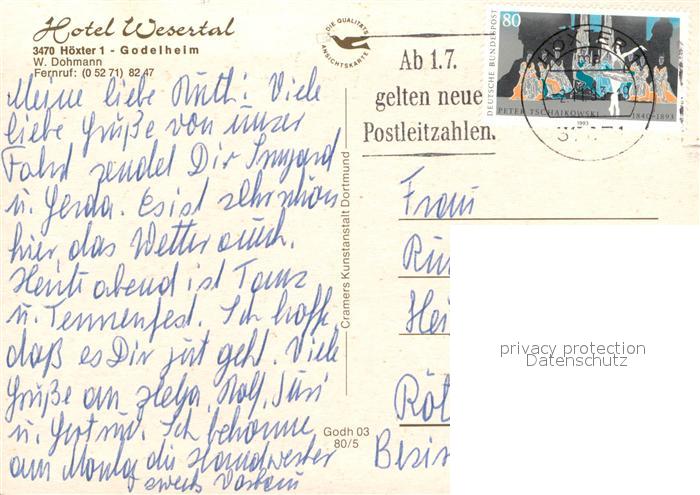 Hotel Wesertal
3470 Höxter 1 - Godelheim
W. Dohmann
Fernruf: (0 52 71) 82 47
DIE QUALITÄTS
ANSICHTSKARTE
Meine liebe Ruth! Viele
liebe Grüße von unser
Fahrt sendet Dir Irmgard
u. Gerda. Es ist sehr schön
hier das Wetter auch.
Heute abend ist Tanz
u. Tennenfest. Ich hoffe,
daß es Dir gut geht. Viele
Grüße an Helga, Rolf,
u. Gertrud. Ich bekomme
am Montag die Handwerker
Cramers Kunstanstalt Dortmund
Godh 03
80/5
Ab 1.7.
gelten neue
Postleitzahlen.
HÖXTER
80
DEUTSCHE BUNDESPOST
PETER TSCHAIKOWSKI 1840-1893
1993
Frau
Ru
Hei
Röt
Bezir
privacy protection
Datenschutz